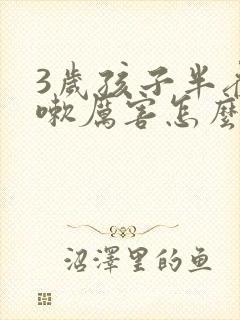 3歲孩子半夜咳
嗽厲害怎麼
沼澤里的鱼